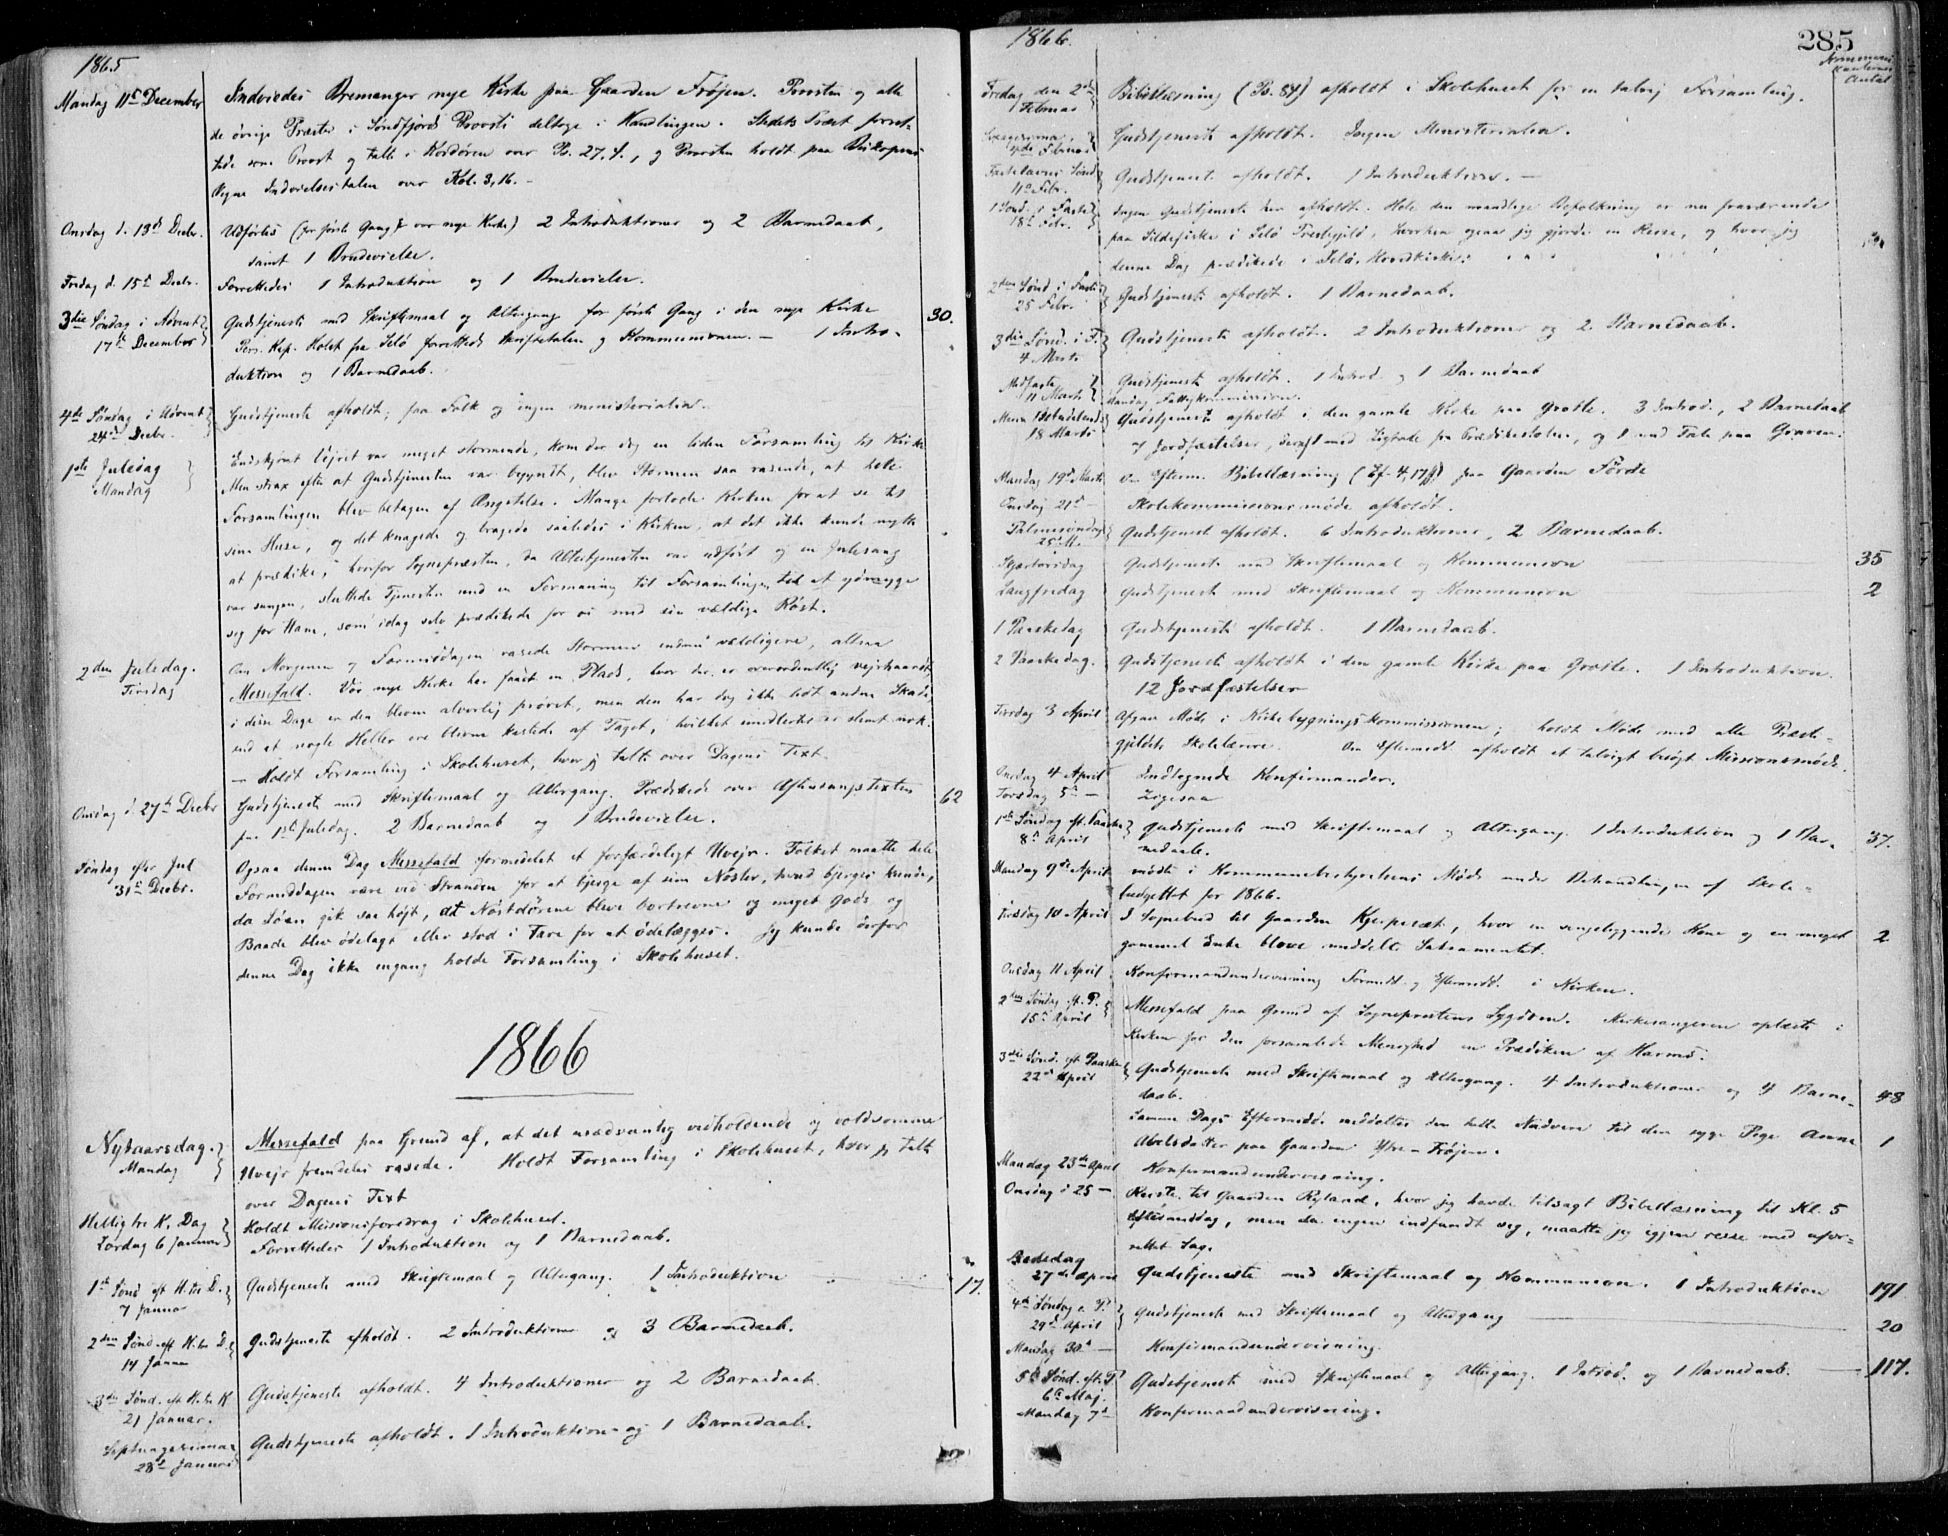 1865
Mandag 11te December Indviedes Bremanger nye Kirke paa Gaarden Frøjen. Provsten og alle
de øvrige Præster i Søndfjords Provsti deltoge i Handlingen. Stedets Præst
som Provst og talte i Kordøren over Ps. 27,4., og Provsten holdt paa Biskopens
Vegne Indvielsestalen over Kol. 3,16. -
Onsdag d. 13de Decbr. Udførtes (for første Gang i vor nye Kirke) 2 Introduktioner og 2 Barnedaab,
samt 1 Brudevielse.
Fredag d. 15de Decbr. Forrettedes 1 Introduktion og 1 Brudevielse.
3die Søndag i Advent Gudstjeneste med Skriftemaal og Altergang for første Gang i den nye Kirke 30.
17de December Pers. Kap. Holst fra Selø forrettede Skriftetalen og Kommunionen. - 1 Intro-
duktion og 1 Barnedaab.
4de Søndag i Advent Gudstjeneste afholdt; faa Folk og ingen ministerialia.
24de Decbr.
1ste Juledag Endskjønt Vejret var meget stormende, kom der dog en liden Forsamling til Kirke
Mandag Men strax efter at Gudstjenesten var begyndt, blev Stormen saa rasende, at hele
Forsamlingen blev betagen af Ængstelse. Mange forlode Kirken for at se til
sine Huse, og det knagede og bragede saaledes i Kirken, at det ikke kunde nytte
at prædike, hvorfor Sognepræsten, da Altertjenesten var udført og en Julesang
var sungen, sluttede Tjenesten med en Formaning til Forsamlingen
for Ham, som idag selv prædikede for os med sin vældige Røst.
2den Juledag. Om Morgenen og Formiddagen rasede Stormen endnu vældigere, altsaa
Tirsdag Messefald. Vor nye Kirke har faaet en Plads, hvor der er overordentlig vejrhaardt,
i disse Dage er den bleven alvorlig prøvet, men den har dog ikke lidt anden Skade,
end at nogle Heller ere blevne kastede af Taget, hvilket imidlertid er slemt nok.
- Holdt Forsamling i Skolehuset, hvor jeg talte over Dagens Text.
Onsdag d. 27de Decbr Gudstjeneste med Skriftemaal og Altergang. Prædikede over Aftensangstexten 62
paa 1ste Juledag. 2 Barnedaab og 1 Brudevielse.
Søndag efter Jul Ogsaa denne Dag Messefald formedelst et forfærdeligt Uvejr. Folket maatte hele
31te Decbr. Formiddagen være ved Stranden for at bjerge af sine Nøster, hvad bjerges kunde,
da Søen gik saa højt, at Nøstdørene bleve bortrevne og meget Gods og
Baade blev ødelagt eller stod i Fare for at ødelægges. Jeg kunde derfor
denne Dag ikke engang holde Forsamling i Skolehuset.
1866
Nytaarsdag. Messefald paa Grund af, at det usædvanlig vedholdende og voldsomme
Mandag Uvejr fremdeles rasede. Holdt Forsamling i Skolehuset, hvor jeg talte
over Dagens Text
Hellig tre K. Dag Holdt Missionsforedrag i Skolehuset.
Lørdag 6 Januar Forrettedes 1 Introduktion og 1 Barnedaab.
1ste Sønd. eft. H. tre D. Gudstjeneste med Skriftemaal og Altergang. 1 Introduktion 17.
7 Januar
2den Sønd. eft. H. tre D. Gudstjeneste afholdt. 2 Introduktioner og 3 Barnedaab.
14 Januar
3die Sønd. eft. H. tre K Gudstjeneste afholdt. 4 Introduktioner og 2 Barnedaab.
21 Januar.
Septuagesima Gudstjeneste afholdt. 1 Introduktion og 1 Barnedaab.
28de Januar
1866. 285
Kommuni-
kanternes
Antal
Fredag den 2den Bibellæsning (Ps. 84) afholdt i Skolehuset for en talrig Forsamling.
Februar
Gudstjeneste afholdt. Ingen Ministerialia.
Februar
Fastelavns Sønd. Gudstjeneste afholdt. 1 Introduktion. -
11te Febr.
1 Sønd. i Faste Ingen Gudstjeneste her afholdt. Hele den mandlige Befolkning er nu fraværende
18de Febr. paa Sildefiske i Selø Præstegjeld, hvorhen ogsaa jeg gjorde en Reise, og hvor jeg
denne Dag prædikede i Selø Hovedkirke.
2den Sønd i Faste Gudstjeneste afholdt. 1 Barnedaab.
25 Febr.
3die Sønd. i F. Gudstjeneste afholdt. 2 Introduktioner og 2 Barnedaab.
4 Marts
Midfaste Gudstjeneste afholdt. 1 Introd. og 1 Barnedaab
11 Marts Mandag Fattigkommission.
Mariæ Bebudelsesd. Gudstjeneste afholdt i den gamle Kirke paa Grotle. 3 Introd., 2 Barnedaab
18 Marts 7 Jordfæstelser, deraf 1 med Ligtale fra Prædikestolen, og 1 med Tale paa Graven.
Mandag 19de Marts Om Efterm. Bibellæsning (Ef. 4,17ff) paa Gaarden Førde
Onsdag 21de - Skolekommissionsmøde afholdt.
Palmesøndag Gudstjeneste afholdt. 6 Introduktioner, 2 Barnedaab.
25de M.
Skjærtorsdag Gudstjeneste med Skriftemaal og Kommunion 35
Langfredag Gudstjeneste med Skriftemaal og Kommunion 2
1 Paaskedag Gudstjeneste afholdt. 1 Barnedaab.
2 Paaskedag. Gudstjeneste afholdt i den gamle Kirke paa Grotle. 1 Introduktion.
12 Jordfæstelser
Tirsdag 3 April Møde i Kirkebygningskommissionen; holdt Møde med alle Præste-
gjeldets Skolelærere. Om Eftermidd. afholdt et talrigt besøgt Missionsmøde.
Onsdag 4 April Indtegnede Konfirmander.
Torsdag 5te - Ligesaa
1ste Søndag eft. Paaske Gudstjeneste med Skriftemaal og Altergang. 1 Introduktion og 1 Bar- 37.
8de April nedaab.
Mandag 9de April mødte i Kommunebestyrelsens Møde under Behandlingen af Skole-
budgettet for 1866.
Tirsdag 10 April I Sognebud til Gaarden, hvor en sengeliggende Kone og en meget 2
gammel Enke bleve meddelte Sakramentet.
Onsdag 11 April Konfirmandundervisning Formidd. og Eftermidd. i Kirken.
2den Søndag eft. P. Messefald paa Grund af Sognepræstens Sygdom. Kirkesangeren oplæste i
15de April Kirken for den forsamlede Menighed en Prædiken af Harms.
3die Sønd. eft Paaske Gudstjeneste med Skriftemaal og Altergang. 4 Introduktioner og 4 Barne- 48
22de April daab.
Samme Dags Eftermidd. meddeltes den hellige Nadvere til den syge Pige Anne 1
Abelsdatter paa Gaarden Ytre-Frøjen.
Mandag 23de April Konfirmandundervisning.
Onsdag d 25 - Reiste til Gaarden Ryland, hvor jeg havde tilsagt Bibellæsning til Kl. 5
Eftermiddag, men da ingen indfandt sig, maatte jeg igjen reise med ufor-
rettet Sag.
Bededag Gudstjeneste med Skriftemaal og Kommunion. 1 Introduktion 191
27de April
4de Søndag e. P. Gudstjeneste med Skriftemaal og Altergang 20
29de April
Mandag 30te - Konfirmandundervisning.
5te Sønd. eft. P Gudstjeneste med Skriftemaal og Altergang. 1 Introd. og 1 Barnedaab. - 117.
6te Maj.
Mandag 7de Konfirmandundervisning.